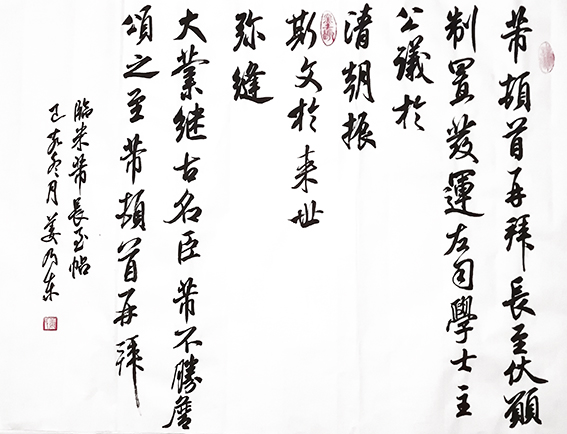 芾頓首再拜長至伏願
制置發運左司學士主
公議於
清朝振
斯文於来世
弥縫
大業继古名臣芾不勝膺
頌之至芾頓首再拜
臨米芾長至帖
己亥冬月姜乃東